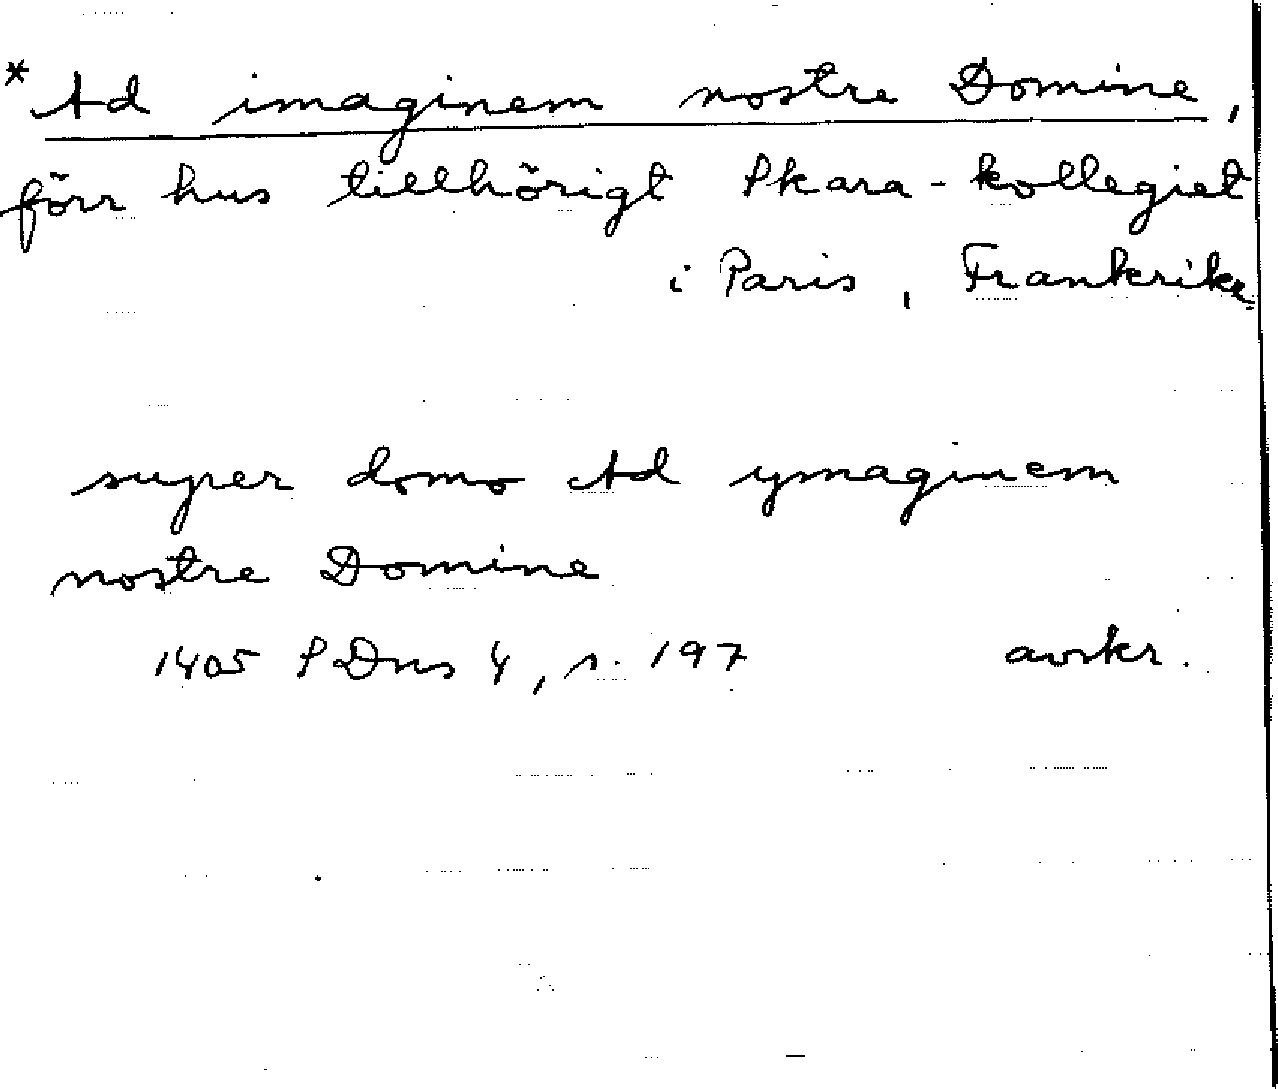 * Ad imaginem nostre Domine,
förr hus tillhörigt Skara-kollegiet
i Paris, Frankrike
super domo Ad ymaginem
nostre Domine
1405 SDns 4, s. 197 avskr.